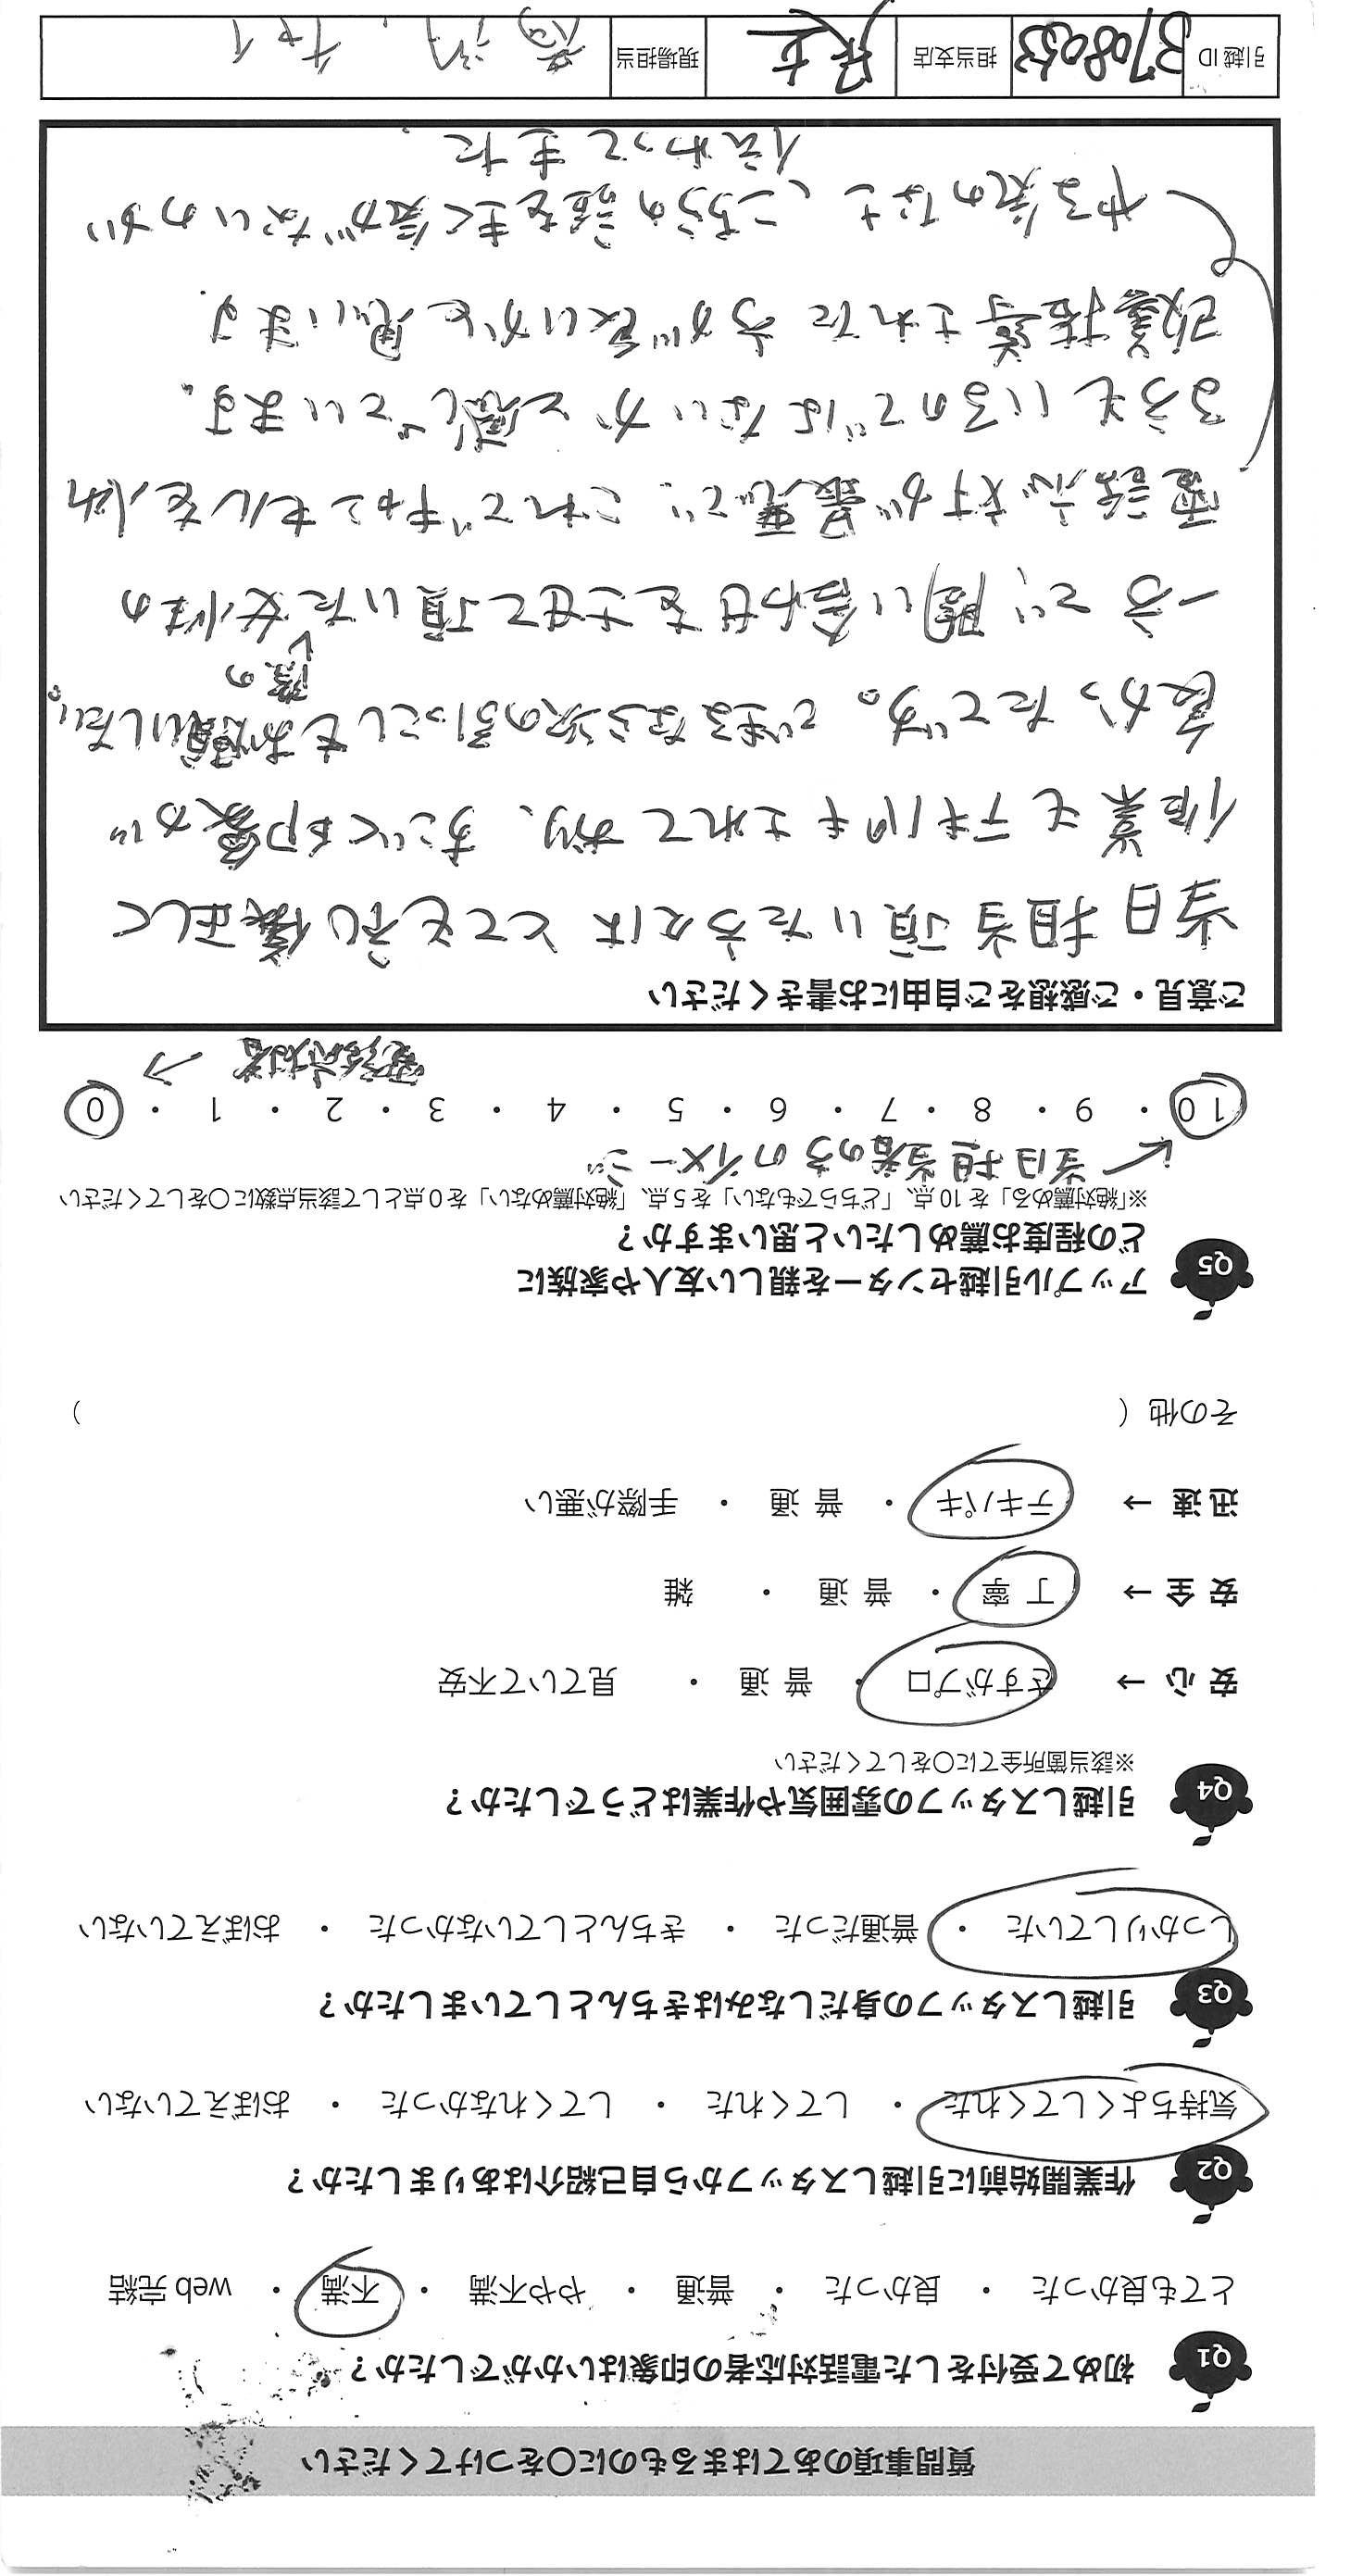 質問事項のあてはまるものに〇をつけてください
Q1 初めて受付をした電話対応者の印象はいかがでしたか？
とても良かった ・ 良かった ・ 普通 ・ やや不満 ・ 不満 ・ web 完結
Q2 作業開始前に引越しスタッフから自己紹介はありましたか？
気持ちよくしてくれた ・ してくれた ・ してくれなかった ・ おぼえていない
Q3 引越しスタッフの身だしなみはきちんとしていましたか？
しっかりしていた ・ 普通だった ・ きちんとしていなかった ・ おぼえていない
Q4 引越しスタッフの雰囲気や作業はどうでしたか？
※該当箇所全てに〇をしてください
安心 → さすがプロ ・ 普通 ・ 見ていて不安
安全 → 丁寧 ・ 普通 ・ 雑
迅速 → テキパキ ・ 普通 ・ 手際が悪い
その他 （ ）
Q5 アップル引越センターを親しい友人や家族に
どの程度お薦めしたいと思いますか？
※「絶対薦める」を 10 点、「どちらでもない」を 5 点、「絶対薦めない」を 0 点として該当点数に〇をしてください
当日担当者の方のイメージ
10 ・ 9 ・ 8 ・ 7 ・ 6 ・ 5 ・ 4 ・ 3 ・ 2 ・ 1 ・ 0
電話応対者 →
ご意見・ご感想をご自由にお書きください
当日担当頂いた方々はとても礼儀正しく
作業もテキパキされており、すごく印象が
良かったです。できるなら次の引っこしもお願いしたい。
際の
一方で、問い合わせをさせて頂いた女性の
電話応対が最悪で、これでキャンセルを入れ
る方もいるのではないかと感じています。
改善指導された方が良いかと思います.
やる気のなさ、こちらの話をきく気がないのが
伝わってきた.
引越 ID 3708053 担当支店 現場担当